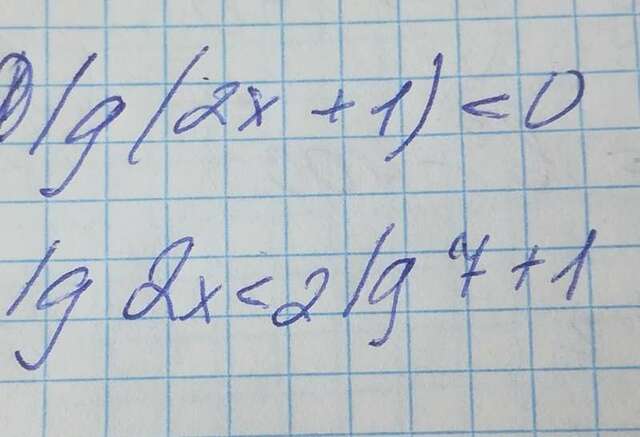 1) lg(2x+1)<0
lg 2x<2lg 7+1